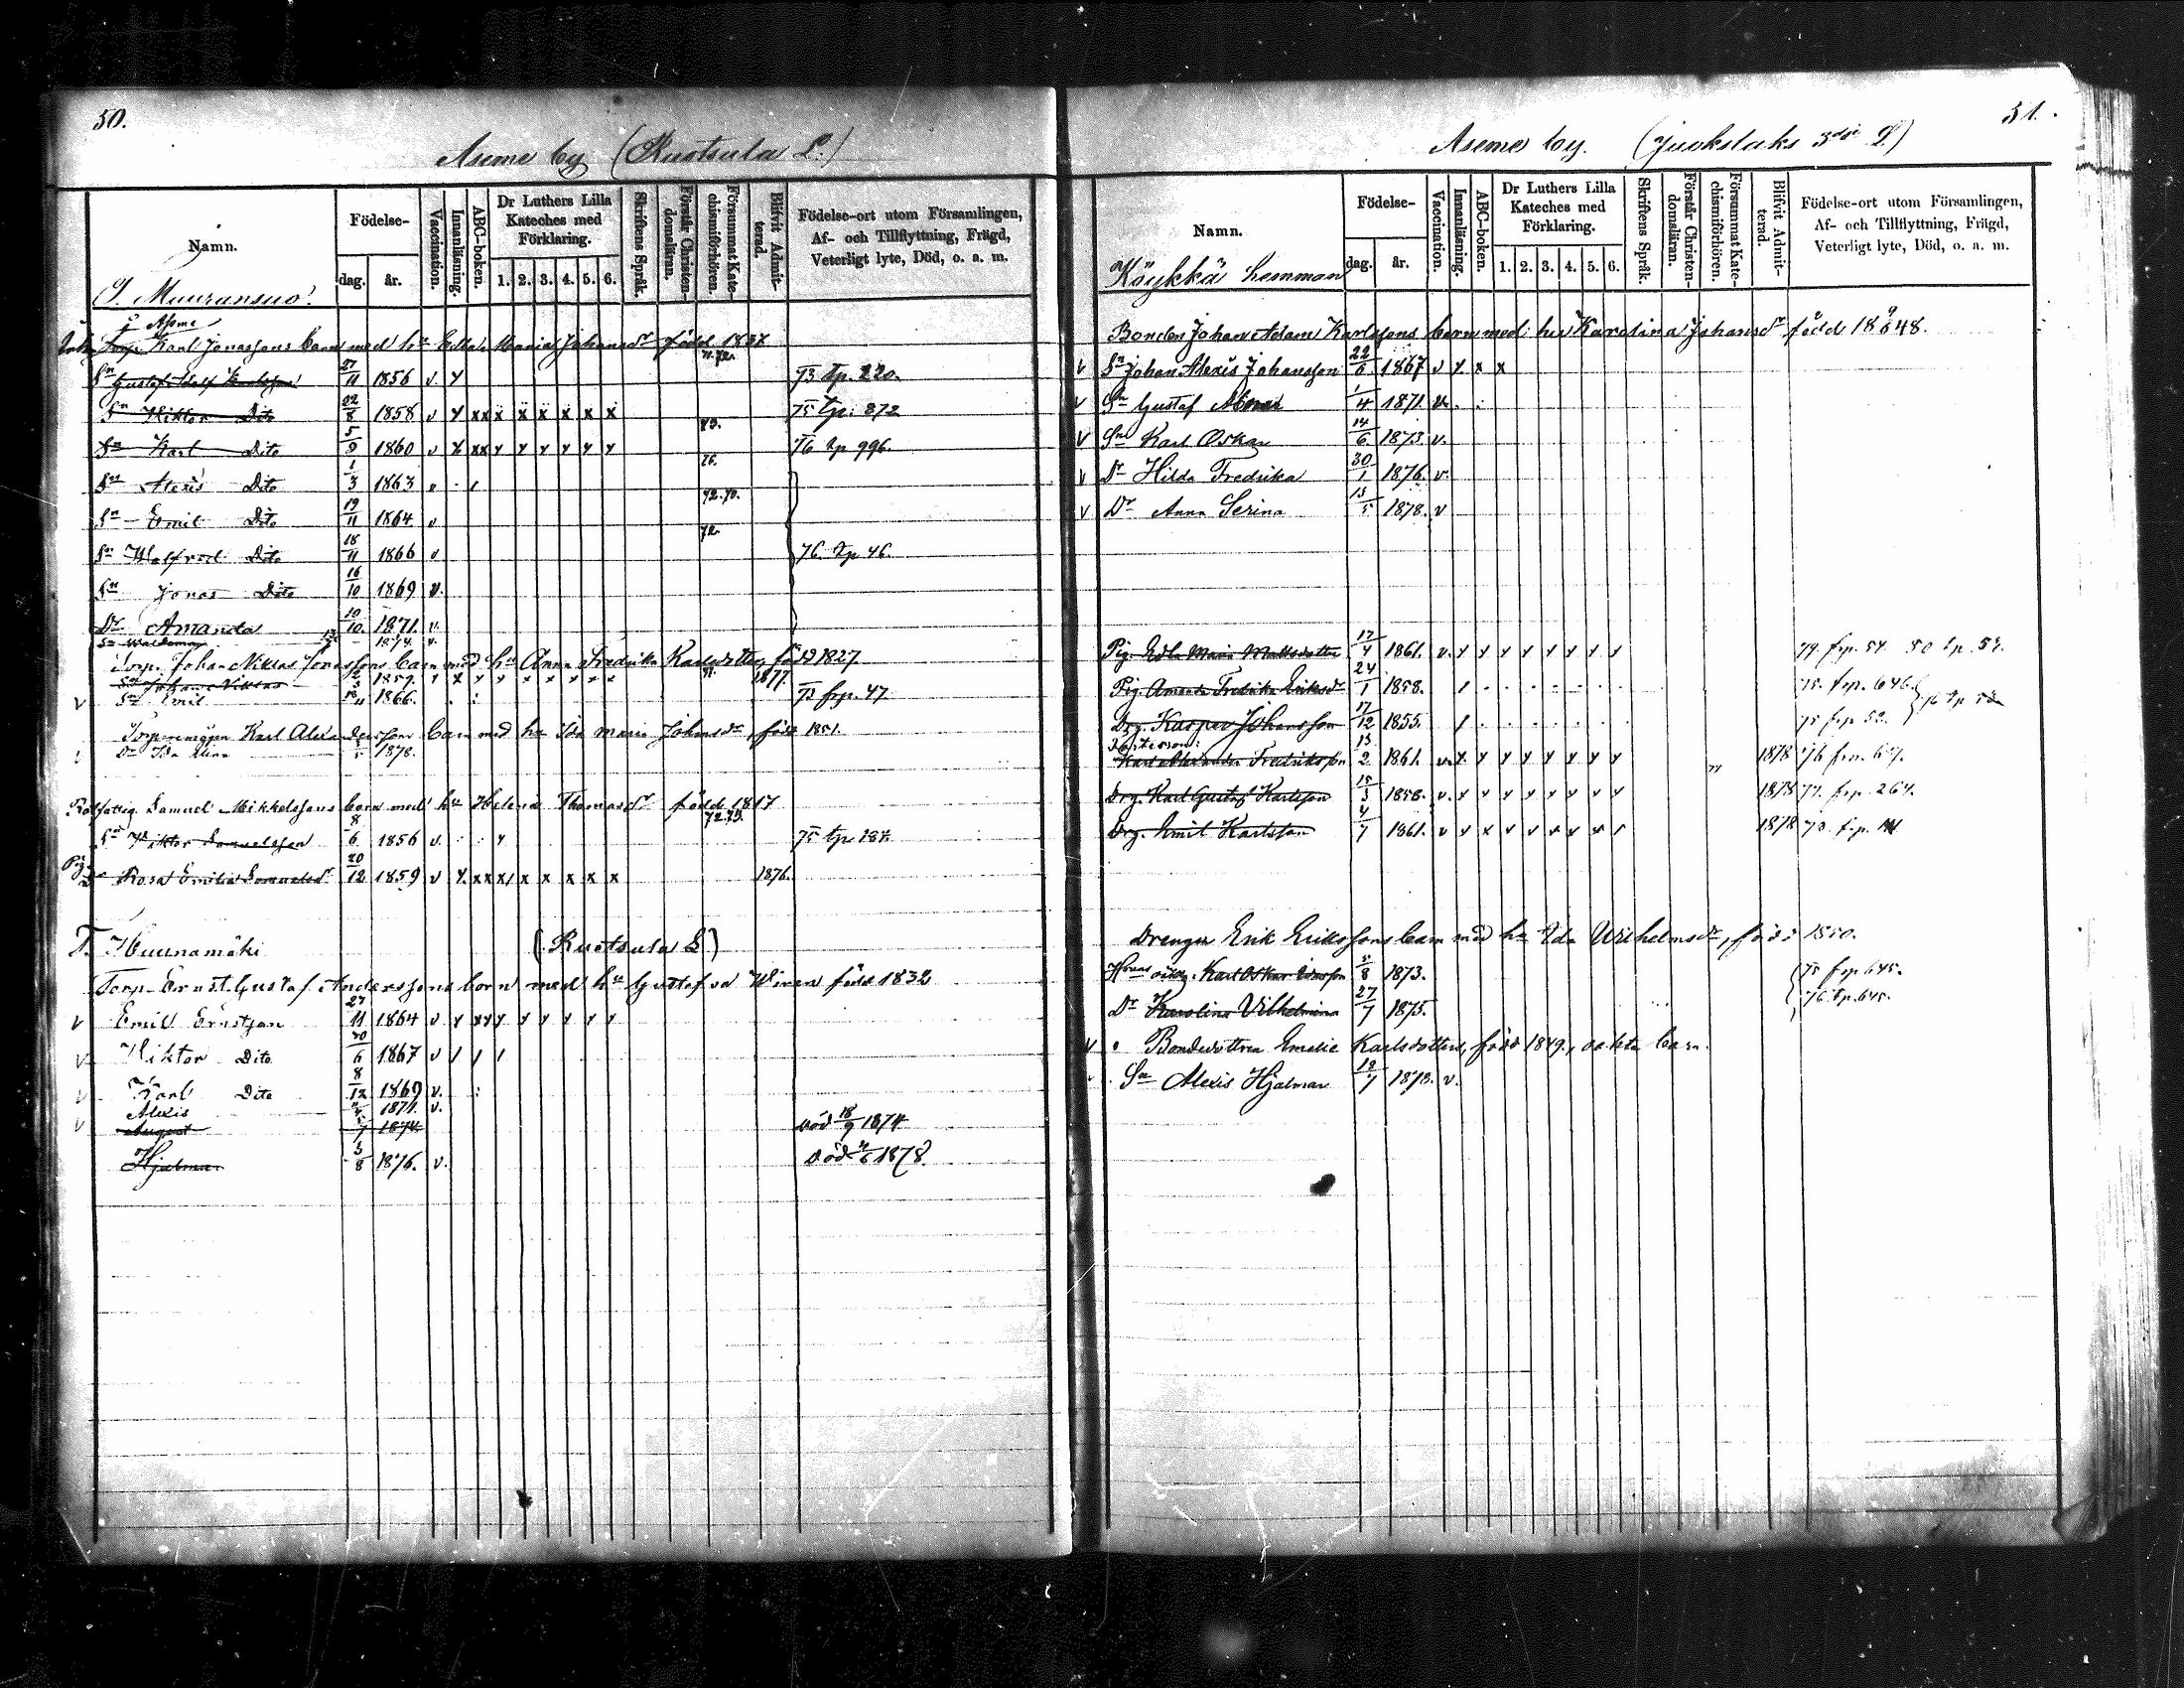 50.
Aseme by (Ruotsula L.)
Namn.
Födelse-
dag.
år.
Vaccination.
Innanläsning.
ABC-boken.
Dr Luthers Lilla Kateches med Förklaring.
1. 2. 3. 4. 5. 6.
Skriftens Språk.
Förstår Christendomsläran.
Försummat Katechismiförhören.
Blifvit Admitterad.
Födelse-ort utom Församlingen, Af- och Tillflyttning, Frägd, Veterligt lyte, Död, o. a. m.
T. Muuransuo.
Karl Jonassons barn med hu Edla Maria Johansdr född 1837
Sn Gustaf Adolf Karlsson 27/11 1856 v y 73 tp. 220.
Sn Viktor Dito 22/8 1858 v y xx x x x x x x 75 tp. 872
Sn Karl Dito 5/9 1860 v y xx y y y y y y 76 tp 996.
Sn Alexis Dito 1/3 1863
Sn Emil Dito 19/11 1864 v
Sn Walfrid Dito 18/11 1866 v 76 tp 46.
Sn Jonas Dito 16/10 1869 v.
Dr Amanda 10/10 1871. v.
Sn Waldemar 1874. v.
Torp. Johan Niklas Jonassons barn med hu Anna Fredrika Karlsdotter, född 1827.
Sn Johan Niklas 1859. 1877
v Sn Emil 1866. 73 frp. 47
Karl Alexanderssons barn med hu Ida Maria Johansdr, född 1851.
Dr Ida Elina 1878.
Rotfattig Samuel Mikkelssons barn med hu Helena Thomasdr född 1817
Sn Viktor Samuelsson 8/6 1856 v. 75 tp. 187.
Pig. Rosa Emilia Samuelsdr 20/12 1859 v y. xx x x x x x x 1876.
T. Huunamäki (Ruotsula L)
Torp. Ernst Gustaf Anderssons barn med hu Gustafva Wiren född 1832
v Emil Ernstson 27/11 1864 v y xx y y y y y y
v Viktor Dito 30/6 1867 v / / /
v Karl Dito 8/12 1869 v. :
Alexis 1871. v.
v August 7 1874 död 18/9 1874
Hjalmar 3/8 1876. v. död 1878.
51.
Aseme by. (Juokslaks 3dje L)
Namn.
Födelse-
dag.
år.
Vaccination.
Innanläsning.
ABC-boken.
Dr Luthers Lilla Kateches med Förklaring.
1. 2. 3. 4. 5. 6.
Skriftens Språk.
Förstår Christendomsläran.
Försummat Katechismiförhören.
Blifvit Admitterad.
Födelse-ort utom Församlingen, Af- och Tillflyttning, Frägd, Veterligt lyte, Död, o. a. m.
Köykkä hemman
Bonden Johan Adam Karlssons barn med hu Karolina Johansdr född 1848.
v Sn Johan Alexis Johansson 22/6 1867 v y x x
v Sn Gustaf 1/4 1871. v.
v Sn Karl Oskar 14/6 1873 v.
v Dr Hilda Fredrika 30/1 1876. v.
v Dr Anna Serina 13/5 1878. v
Pig. Edla Maria Mattsdotter 17/4 1861. v. y y y y y y y y 79. frp. 54. 80 tp. 52.
Pig. Amanda Fredrika Eriksdr 24/1 1858. 75. frp. 646.
Drg. Kasper Johansson 17/12 1855. 75 frp 52.
Karl Alexander Fredriksson 13/2 1861. v. y y y y y y y y 1878 76 frn. 647.
Drg. Karl Gustaf Karlsson 15/3 1858. v. y y y y y y y y 1878 77. frp. 264.
Drg. Emil Karlsson 4/7 1861. v y x y y y y y 1878 78. frp.
Drengen Erik Erikssons barn med hu Ida Wilhelmsdr, född 1850.
Karl Oskar 5/8 1873. 75 frp 645.
Dr Karolina Vilhelmina 27/7 1875. 76 tp. 645.
v Bondedottren Emelie Karlsdotters, född 1849, oäkta barn.
Sn Alexis Hjalmar 7 1873. v.